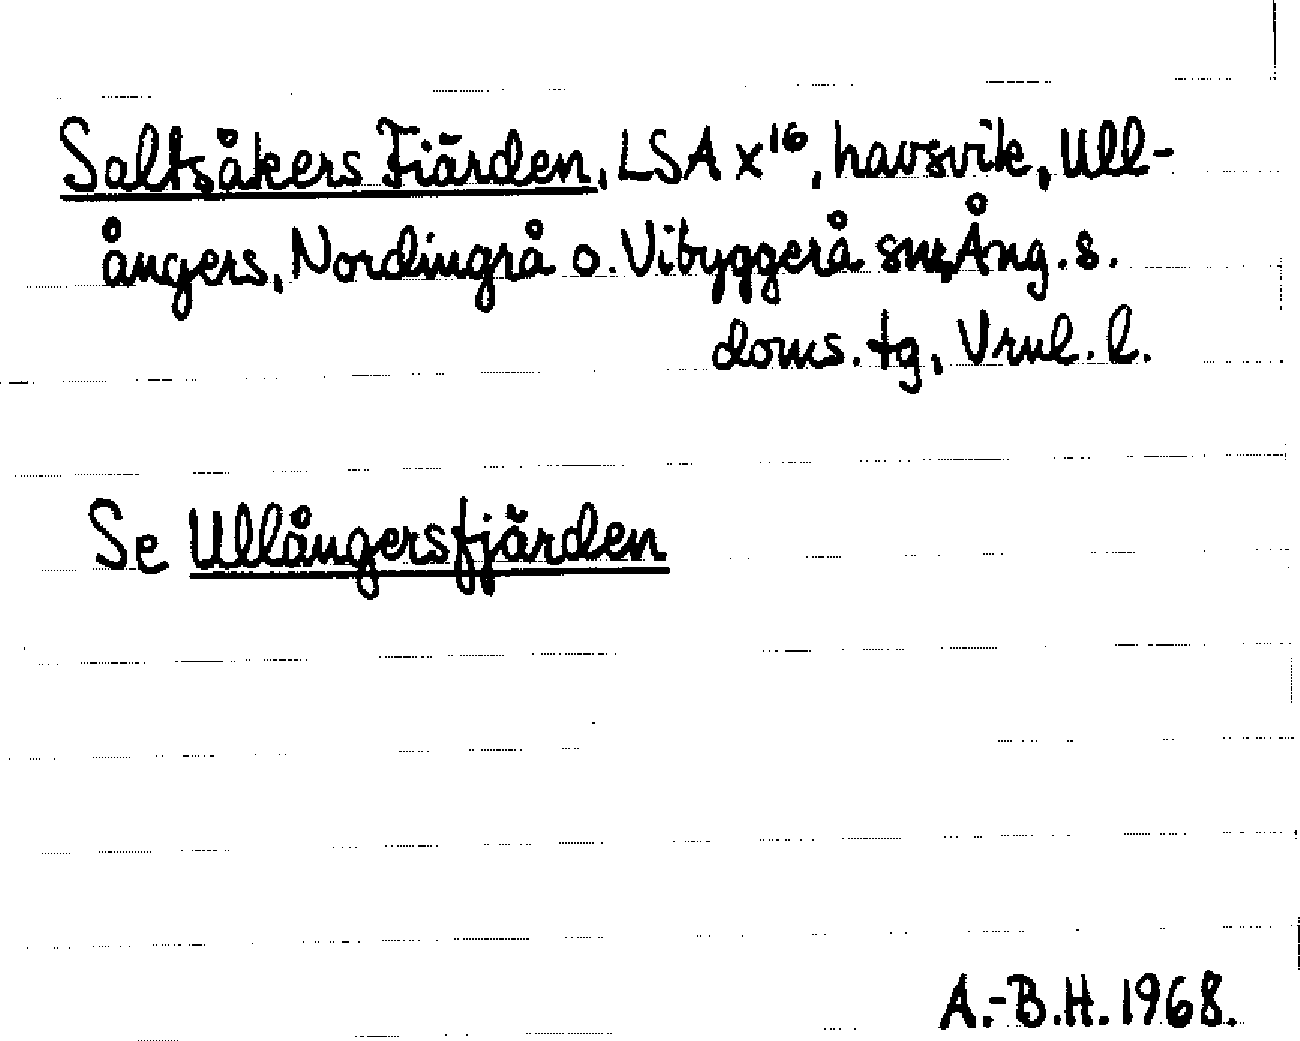 Saltsåkers Fiärden, LSA x¹⁶, havsvik, Ull-
ångers, Nordingrå o. Vibyggerå snr, Ång. s.
doms. tg, Vrnl. l.
Se Ullångersfjärden
A.-B.H. 1968.